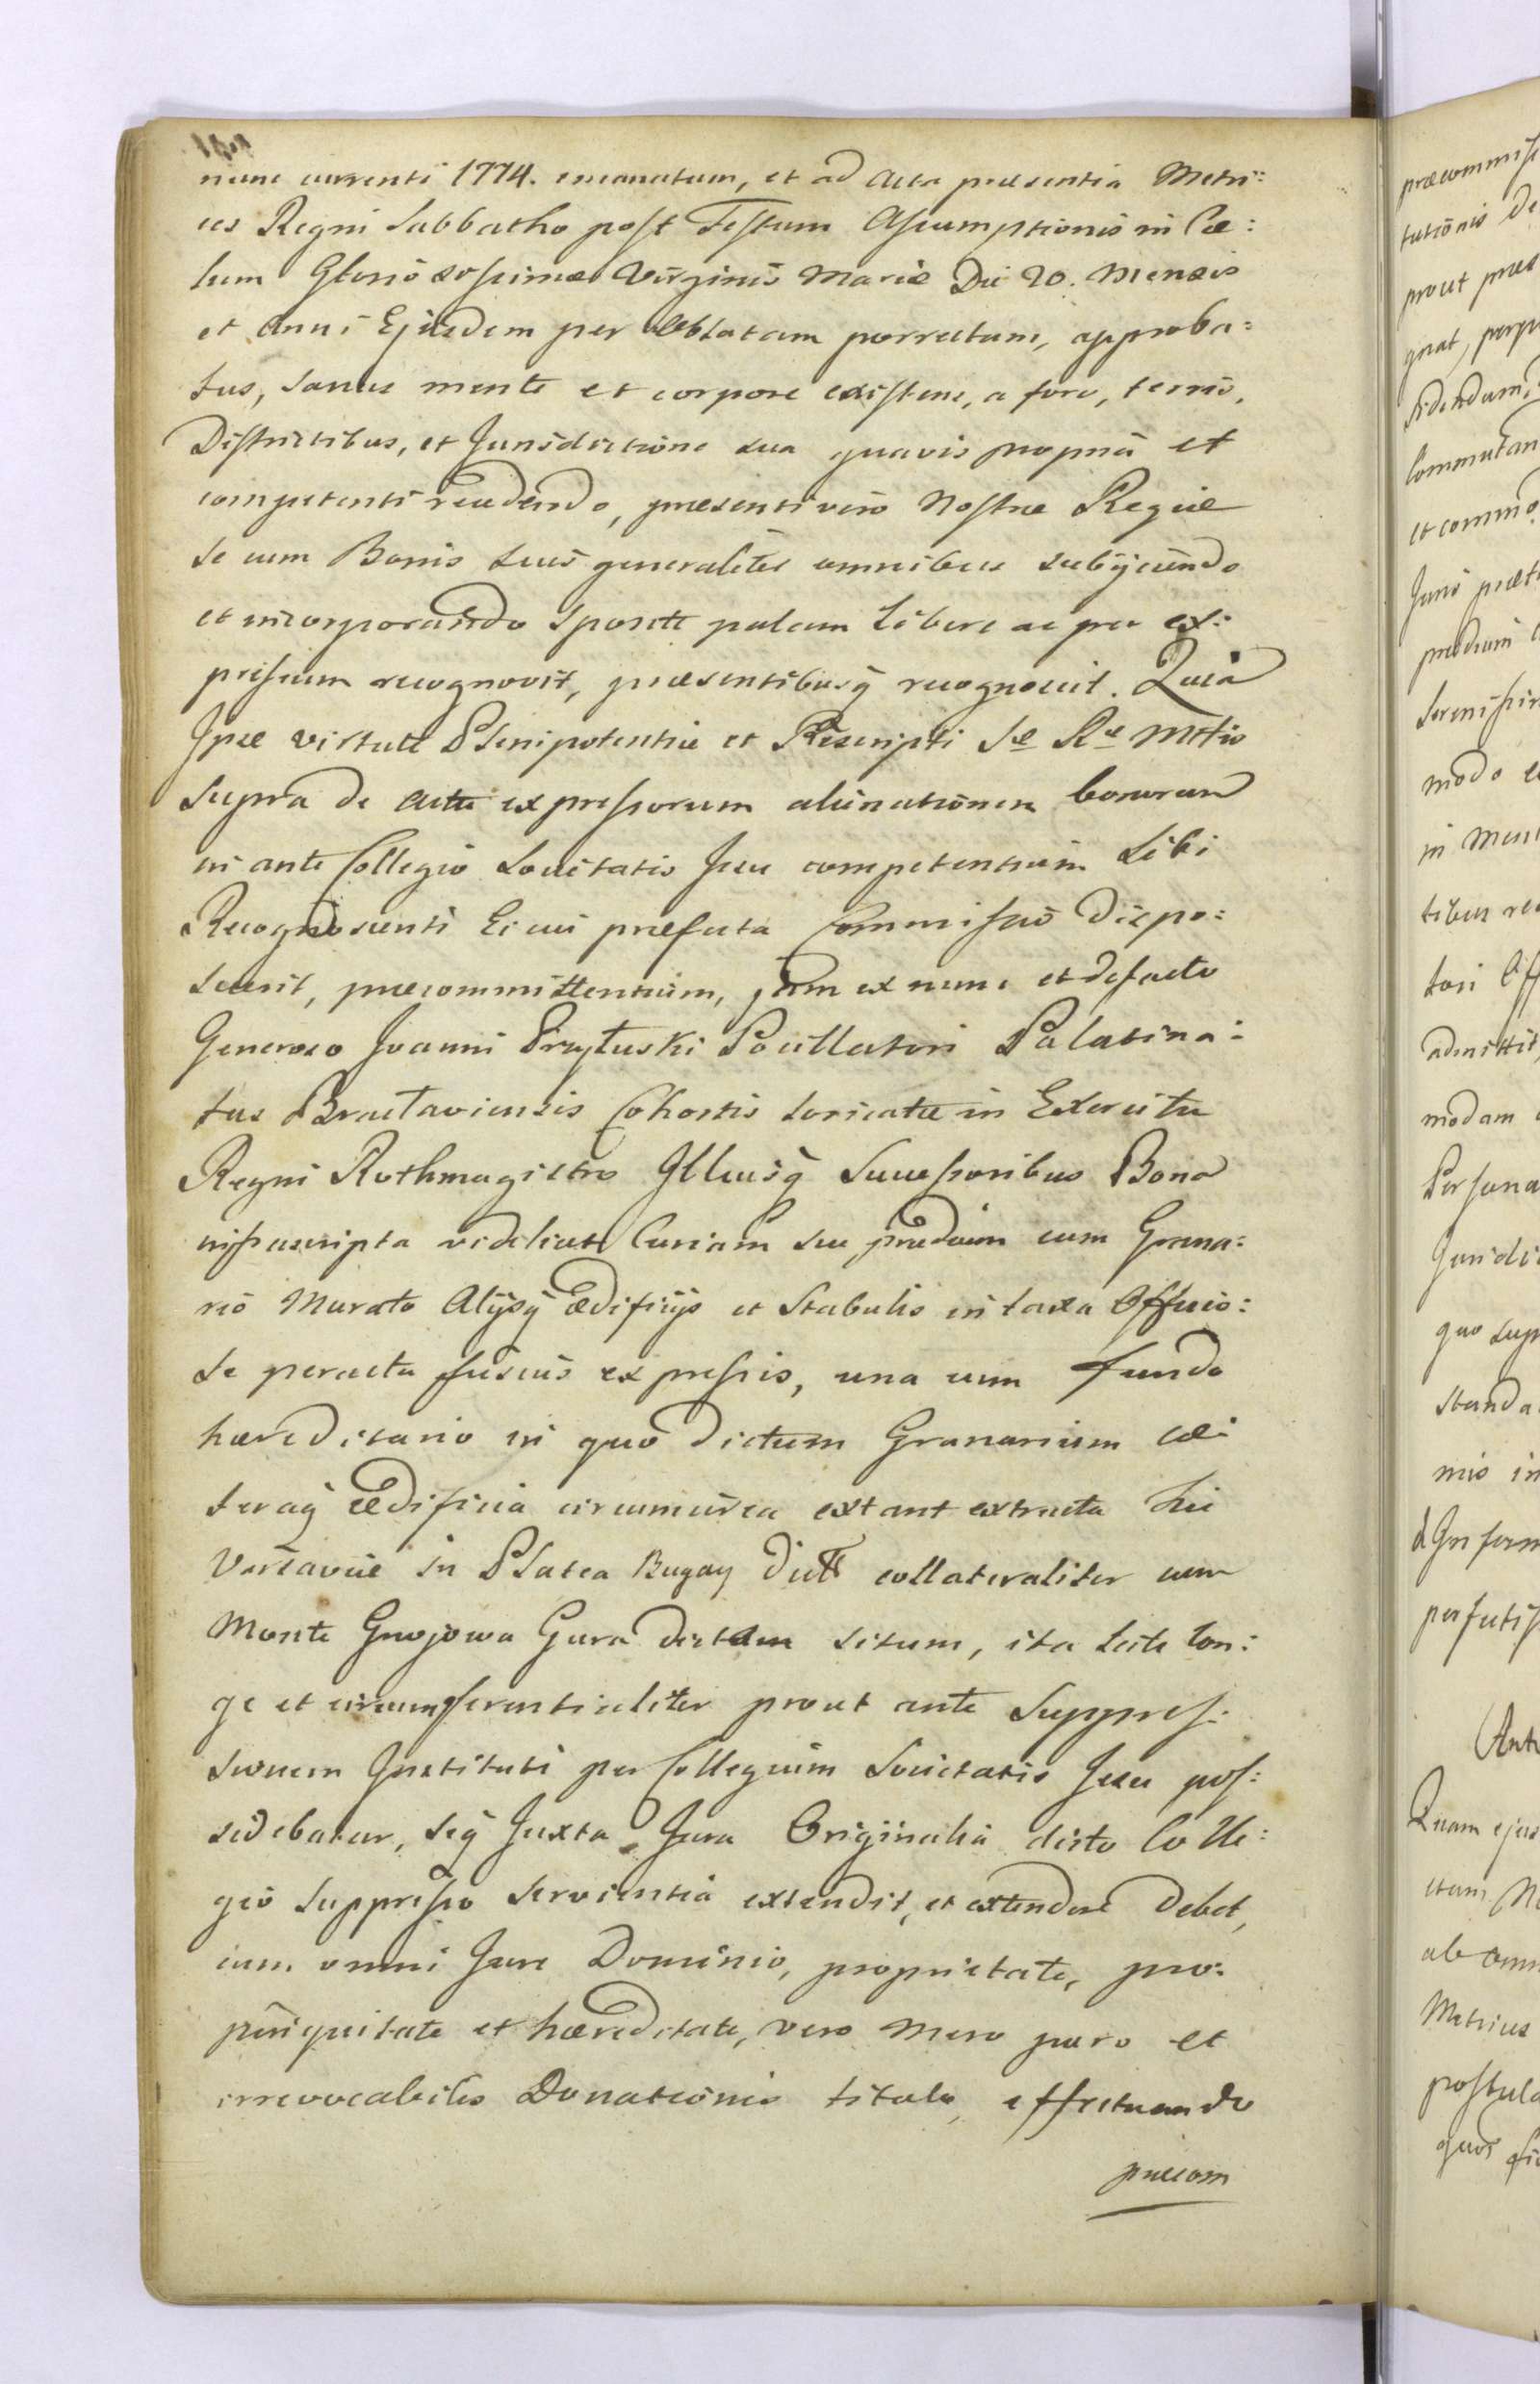 nunc currenti 1774. emanatum, et ad Acta præsentia Metri:
ces Regni Sabbatho post Festum Assumptionis in Cæ:
lum Gloriosissimæ Virginis Mariæ Die 20. Mensis
et Anni Ejusdem per Oblatam porrectum, approba:
tus, sanus mente et corpore existens, a foro, terris,
Districtibus, et Jurisdictione sua quavis propria et
competenti recedendo, præsenti vero Nostræ Regiæ
se cum Bonis suis generaliter omnibus subijciendo
et incorporando sponte palam libere ac per ex:
pressum recognovit, præsentibusq recognoscit. Quia
Ipse virtute Plenipotentiæ et Rescripti Sæ Ræ Mttis
supra de actu expressorum alienationem bonorum
in ante Collegio Societatis Jesu competentium Sibi
Recognoscenti Ei cui præfata Commissio Dispo:
suerit, præcommittentium, jam ex nunc et defacto
Generoso Joanni Przyłuski Pocillatori Palatina:
tus Bracłaviensis Cohortis Loricatæ in Exercitu
Regni Rothmagistro Illiusq Successoribus Bona
infrascripta videlicet Curiam seu prædium cum Grana:
rio Murato Alijsq Ædificijs et Stabulis in taxa Officio:
se peracta fusius expressis, una cum fundo
hæreditario in quo dictum Granarium cæ:
teraq ædificia circumcirca extant extructa hic
Varsaviæ in Platea Bugay dicta collateraliter cum
Monte Gnojowa Gura dictam situm, ita late lon:
ge et circumferentialiter prout ante Suppres:
sionem Instituti per Collegium Societatis Jesu pos:
sidebatur, seq Juxta Jura Originalia dicto Colle:
gio suppresso servientia extendit, et extendere debet,
cum omni Jure Dominio, proprietate, pro:
pinquitate et hæreditate, vero mero puro et
irrevocabilis Donationis titulo, effectuando
præcom